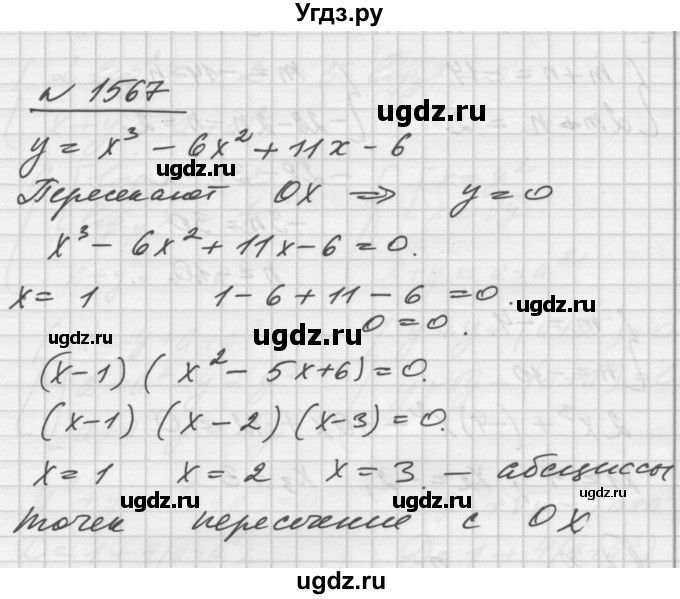 Угдз.ру
N 1567
ugdz.ru
y = x³ - 6x² + 11x - 6
ugdz.ru ugdz.ru
Пересекают OX ⇒ y = 0
x³ - 6x² + 11x - 6 = 0.
x = 1 1 - 6 + 11 - 6 = 0.
ugdz.ru
0 = 0.
ugdz.ru ugdz.ru
(x-1) (x² - 5x + 6) = 0.
(x-1) (x-2) (x-3) = 0.
x = 1 x = 2 x = 3. — абсциссы
ugdz.ru ugdz.ru
точек пересечение с OX
ugdz.ru